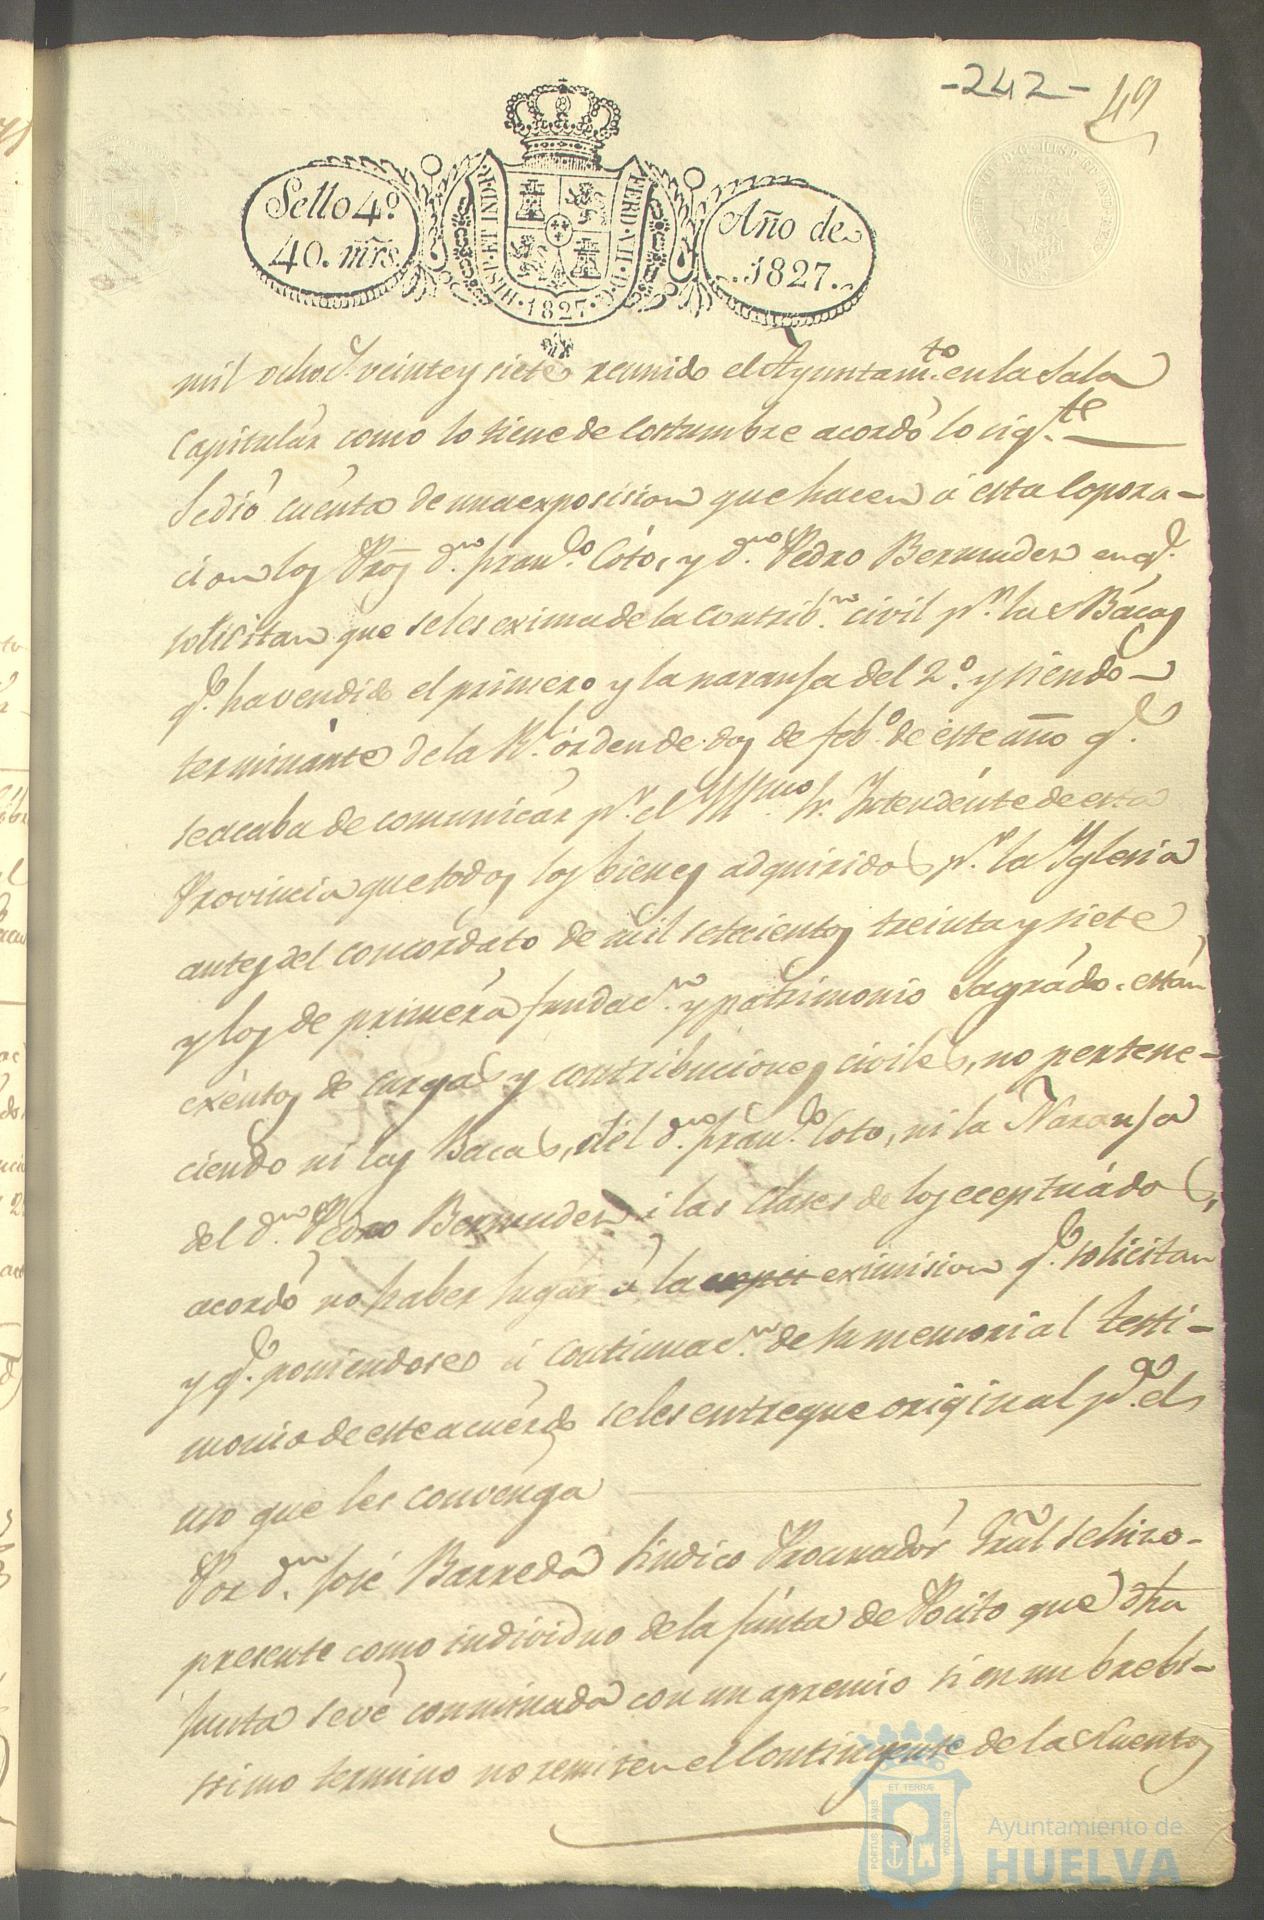 -242-
49
Sello 4º
40. mrs.
HISP. ET IND. R.
FERD. VII. D. G.
1827
Año de
1827.
mil ochoc.s veinte y siete reunido el Ayuntam.to en la Sala
Capitulár como lo tiene de Costumbre acordó lo sig.te
Se dió cuenta de una exposision que hacen á esta Copora-
cion los Pros d.n Fran.co Cóto, y d.n Pedro Bermudes en q.e
solicitan que se les exima de la Contrib.n civil p.r las Bacas
q.e ha vendido el primero y la naranja del 2.º y siendo
terminante de la R.l órden de dos de feb.o de este año q.e
se acaba de comunicár p.r el Yllmo. Sr. Intendente de esta
Provincia que todos los bienes adquiridos p.r la Yglesia
antes del concordato de mil setecientos treinta y siete
y los de primera fundac.n y patrimonio Sagrádo. están
exéntos de cargas y contribuciones civiles, no pertene-
ciendo ni las Bacas, del d.n Fran.co Coto, ni la Naranja
del d.n Pedro Bermudes á las clases de los eceptuádos,
acordó no haber lugár á la eximision q.e solicitan
y q.e poniendose á continuac.n de su memorial testi-
monio de este acuerdo se les entregue original p.a el
uso que les convenga
Por d.n José Barreda Sindico Procuradór Gral se hizo-
presente como individuo de la Junta de Pocito que dha
Junta se vé conminada con un apremio si en un brebi-
simo termino no remiten el Contingente de la Cuentas
PORTUS MARIS ET TERRÆ CUSTODIA
Ayuntamiento de
HUELVA